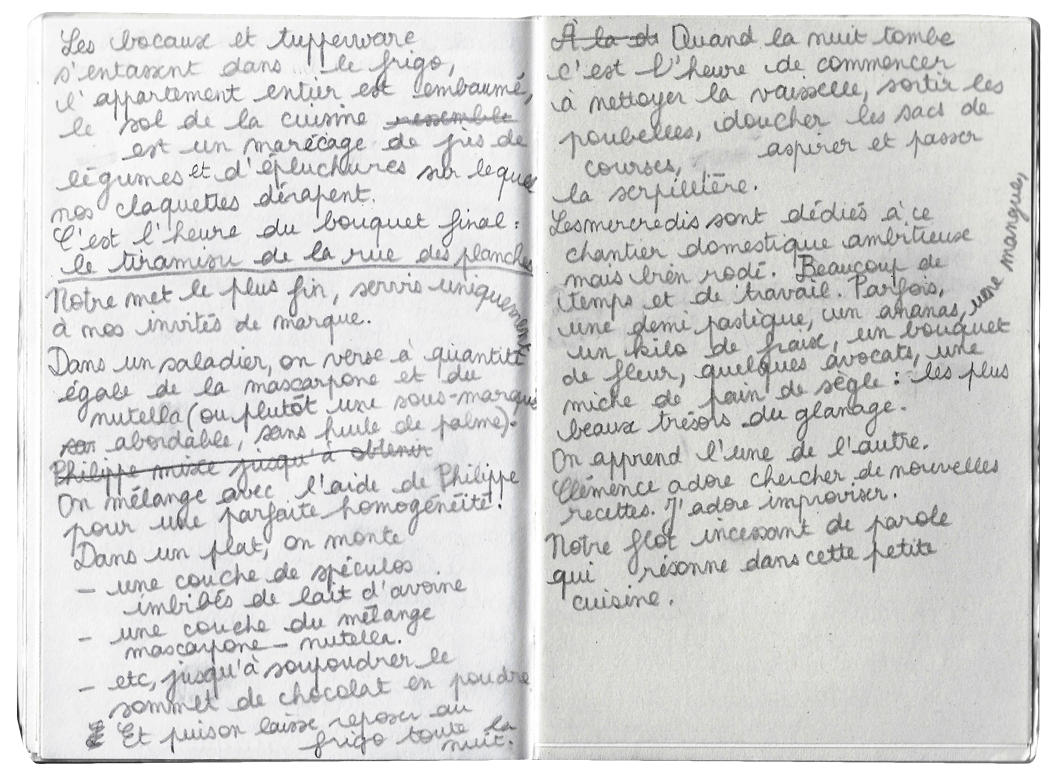 Les bocaux et tupperware
s'entassent dans le frigo,
l'appartement entier est embaumé,
le sol de la cuisine ressemble
est un marécage de jus de
légumes et d'épluchures sur lequel
nos claquettes dérapent.
C'est l'heure du bouquet final :
le tiramisu de la rue des planches
Notre met le plus fin, servis uniquement
à nos invités de marque.
Dans un saladier, on verse à quantité
égale de la mascarpone et du
nutella (ou plutôt une sous-marque
abordable, sans huile de palme).
Philippe mixe jusqu'à obtenir
On mélange avec l'aide de Philippe
pour une parfaite homogénéité.
Dans un plat, on monte
- une couche de spéculos
imbibés de lait d'avoine
- une couche du mélange
mascarpone - nutella.
- etc, jusqu'à soupoudrer le
sommet de chocolat en poudre
Et puis on laisse reposer au
frigo toute la
nuit.
À la Quand la nuit tombe
c'est l'heure de commencer
à nettoyer la vaisselle, sortir les
poubelles, doucher les sacs de
courses, aspirer et passer
la serpillère.
Les mercredis sont dédiés à ce
chantier domestique ambitieux
mais bien rodé. Beaucoup de
temps et de travail. Parfois,
une demi pastèque, un ananas, une mangue,
un kilo de fraise, un bouquet
de fleur, quelques avocats, une
miche de pain de sègle : les plus
beaux trésors du glanage.
On apprend l'une de l'autre.
Clémence adore chercher de nouvelles
recettes. J'adore improviser.
Notre flot incessant de parole
qui résonne dans cette petite
cuisine.